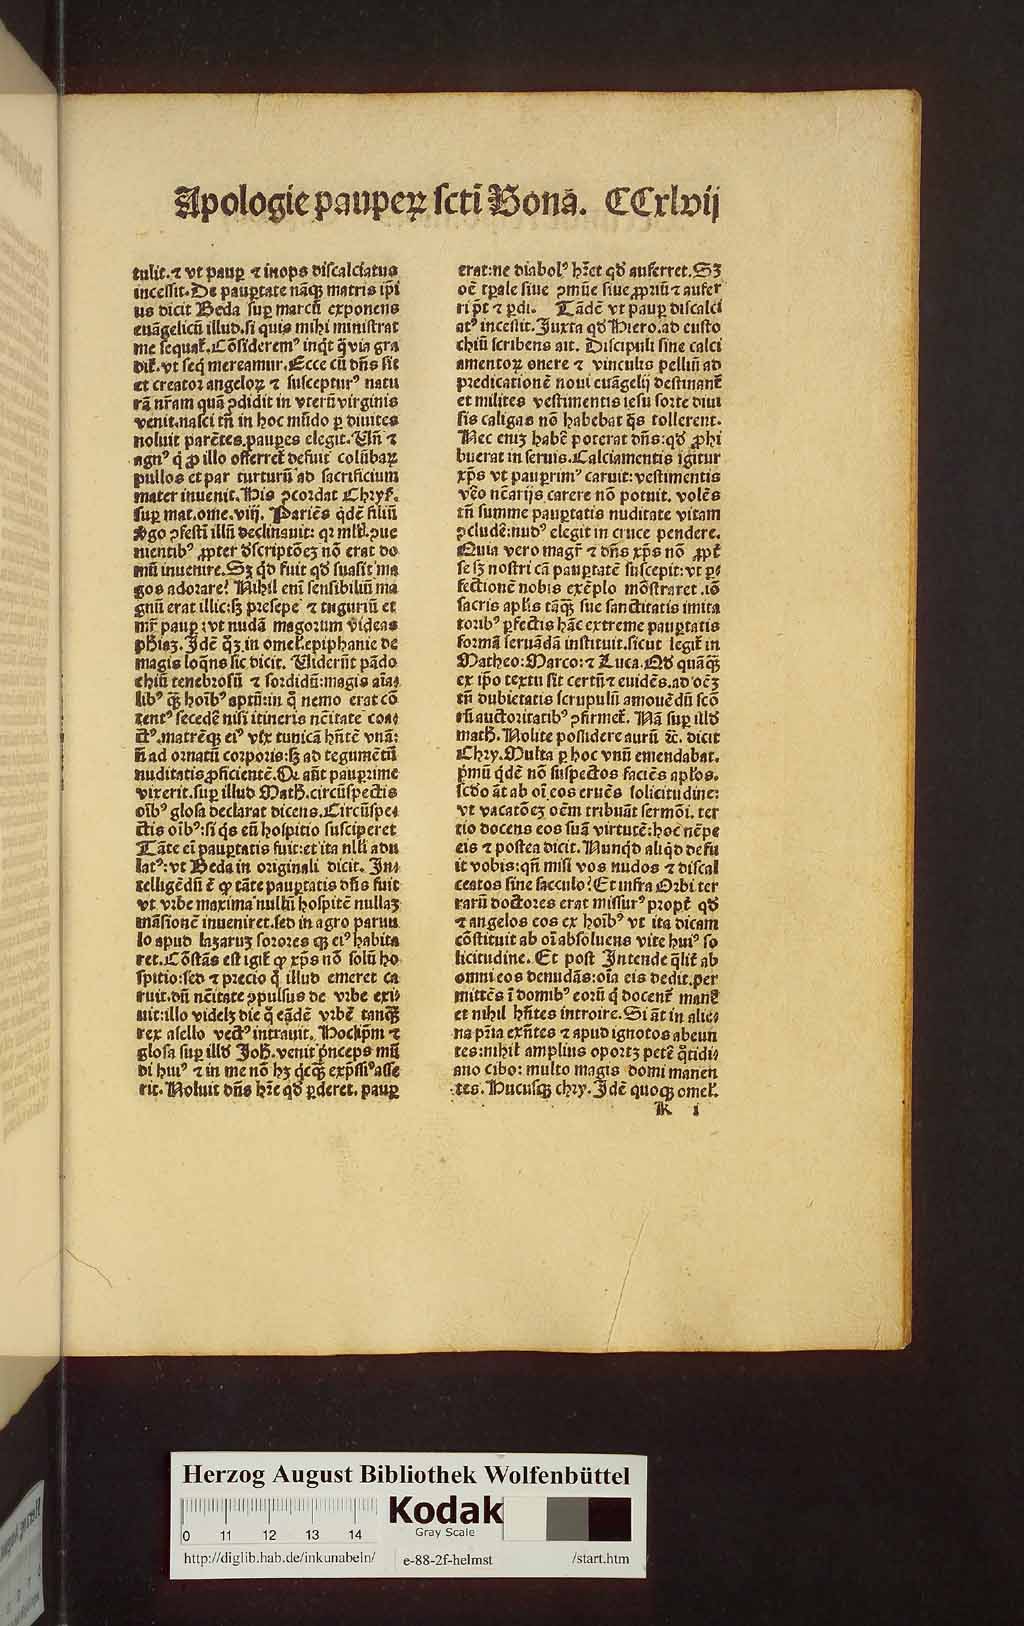 Apologie pauperꝝ sctī Bonā. CCxlvij
tulit. ⁊ vt paup̲ ⁊ inops discalciatus
incessit. De paup̲tate nāqꝫ matris ip̄i
us dicit Beda sup̲ marcū exponens
euāgelicū illud. si quis mihi ministrat
me sequat᷑. Cōsiderem⁹ inq̇t q̄ via gra
dit᷑. vt seq̇ mereamur. Ecce cū dn̄s sit
et creator angeloꝝ ⁊ susceptur⁹ natu
rā nr̄am quā ꝓdidit in vterū virginis
venit. nasci tn̄ in hoc mūdo p̲ diuites
noluit parētes. paup̲es elegit. Un̄ ⁊
agn⁹ q̇ ꝓ illo offerret᷑ defuit colūbaꝝ
pullos et par turturū ad sacrificium
mater inuenit. His ↄcordat Chrys.
sup̲ mat. ome. viij. Pariēs q̇dē filiū
ꝟgo ↄfestī illū declinauit: qꝛ ml̄t. ↄue
nientib⁹ ꝓpter dscriptōeꝫ nō erat do
mū inuenire. Sꝫ q̇d fuit qd̓ suasit ma
gos adorare? Nihil eni sensibiliū ma
gnū erat illic: sꝫ presepe ⁊ tuguriū et
mr̄ paup̲: vt nudā magorum videas
ph̄iaꝫ. Idē qꝫ in omel. epiphanie de
magis loq̄ns sic dicit. Uiderūt pādo
chiū tenebrosū ⁊ sordidū: magis aīa⸗
lib⁹ qꝫ hoīb⁹ aptū: in q̄ nemo erat cō
tent⁹ secedē nisi itineris nc̄itate coa⸗
ct⁹. matrēqꝫ ei⁹ vix tunicā hn̄tē vnā:
n̄ ad ornatū corporis: sꝫ ad tegumētū
nuditatis ꝓficientē. Qꝛ aūt paup̲rime
vixerit. sup̲ illud Math. circūspectis
oīb⁹ glosa declarat dicens. Circūspe⸗
ctis oīb⁹: si q̇s eū hospitio susciperet
Tāte eī paup̲tatis fuit: et ita nlli adu
lat⁹: vt Beda in originali dicit. In⸗
telligēdū ē ꝙ tāte paup̲tatis dn̄s fuit
vt vrbe maxima nullū hospitē nullaꝫ
māsionē inueniret. sed in agro paruu
lo apud lazaruꝫ sorores qꝫ ei⁹ habita
ret. Cōstās est igit᷑ ꝙ xp̄s nō solū ho
spitio: sed ⁊ precio q̄ illud emeret ca
ruit. dū nc̄itate ꝓpulsus de vrbe exi⸗
uit: illo videlꝫ die q̄ eādē vrbē tanqꝫ
rex asello vect⁹ intrauit. Hoc ip̄m ⁊
glosa sup̲ illd̓ Joh. venit p̄nceps mū
di hui⁹ ⁊ in me nō hꝫ q̇cqꝫ exp̄ssi⁹ asse
rit. Noluit dn̄s hr̄e qd̓ p̲deret. paup̲
erat: ne diabol⁹ hr̄et qd̓ auferret. Sꝫ
oē tp̲ale siue ↄmūe siue ꝓpriū ⁊ aufer
ri p̄t ⁊ p̲di. Tādē vt paup̲ discalci
at⁹ incessit. Juxta qd̓ Hiero. ad eusto
chiū scribens ait. Discipuli sine calci
amentoꝝ onere ⁊ vinculis pelliū ad
predicationē noui euāgelij destinant᷑
et milites vestimentis iesu sorte diui
sis caligas nō habebāt q̇s tollerent.
Nec eniꝫ habē poterat dn̄s: qd̓ ꝓhi
buerat in seruis. Calciamentis igitur
xp̄s vt paup̲rim⁹ caruit: vestimentis
ꝟo nc̄arijs carere nō potuit. volēs
tn̄ summe paup̲tatis nuditate vitam
ↄcludē: nud⁹ elegit in cruce pendere.
Quia vero magr̄ ⁊ dn̄s xp̄s nō ꝓpt᷑
se sꝫ nostri cā paup̲tatē suscepit: vt p̲⸗
fectionē nobis exēplo mōstraret. iō
sacris apl̄is tāqꝫ sue sanctitatis imita
torib⁹ p̲fectis hāc extreme paup̲tatis
formā seruādā instituit. sicut legit᷑ in
Matheo: Marco: ⁊ Luca. Qd̓ quāqꝫ
ex ip̄o textu sit certū ⁊ euidēs. ad oēꝫ
tn̄ dubietatis scrupulū amouēdū scō
rū auctoritatib⁹ ↄfirmet᷑. Nā sup̲ illd̓
math. Nolite possidere aurū ⁊c̄. dicit
Chry. Multa p̲ hoc vnū emendabat.
p̄mū q̇dē nō suspectos faciēs apl̄os.
scd̓o āt ab oī eos eruēs solicitudine:
vt vacatōeꝫ oēm tribuāt sermōi. ter
tio docens eos suā virtutē: hoc nēpe
eis ⁊ postea dicit. Nunqd̓ aliqd̓ defu
it vobis: qn̄ misi vos nudos ⁊ discal
ceatos sine sacculo? Et infra Orbi ter
rarū doctores erat missur⁹ propt᷑ qd̓
⁊ angelos eos ex hoīb⁹ vt ita dicam
cōstituit ab oī absoluens vite hui⁹ so
licitudine. Et post Intende q̄lit᷑ ab
omni eos denudās: oīa eis dedit. per
mittēs ī domib⁹ eorū q̇ docent᷑ mane᷑
et nihil hn̄tes introire. Si āt in alie⸗
na pr̄ia exn̄tes ⁊ apud ignotos abeun
tes: nihil amplius oportꝫ petē q̇tidi⸗
ano cibo: multo magis domi manen
tes. Hucusqꝫ chry. Idē quoqꝫ omel.
K i
Herzog August Bibliothek Wolfenbüttel
0 11 12 13 14
Kodak
Gray Scale
http://diglib.hab.de/inkunabeln/ e-88-2f-helmst /start.htm